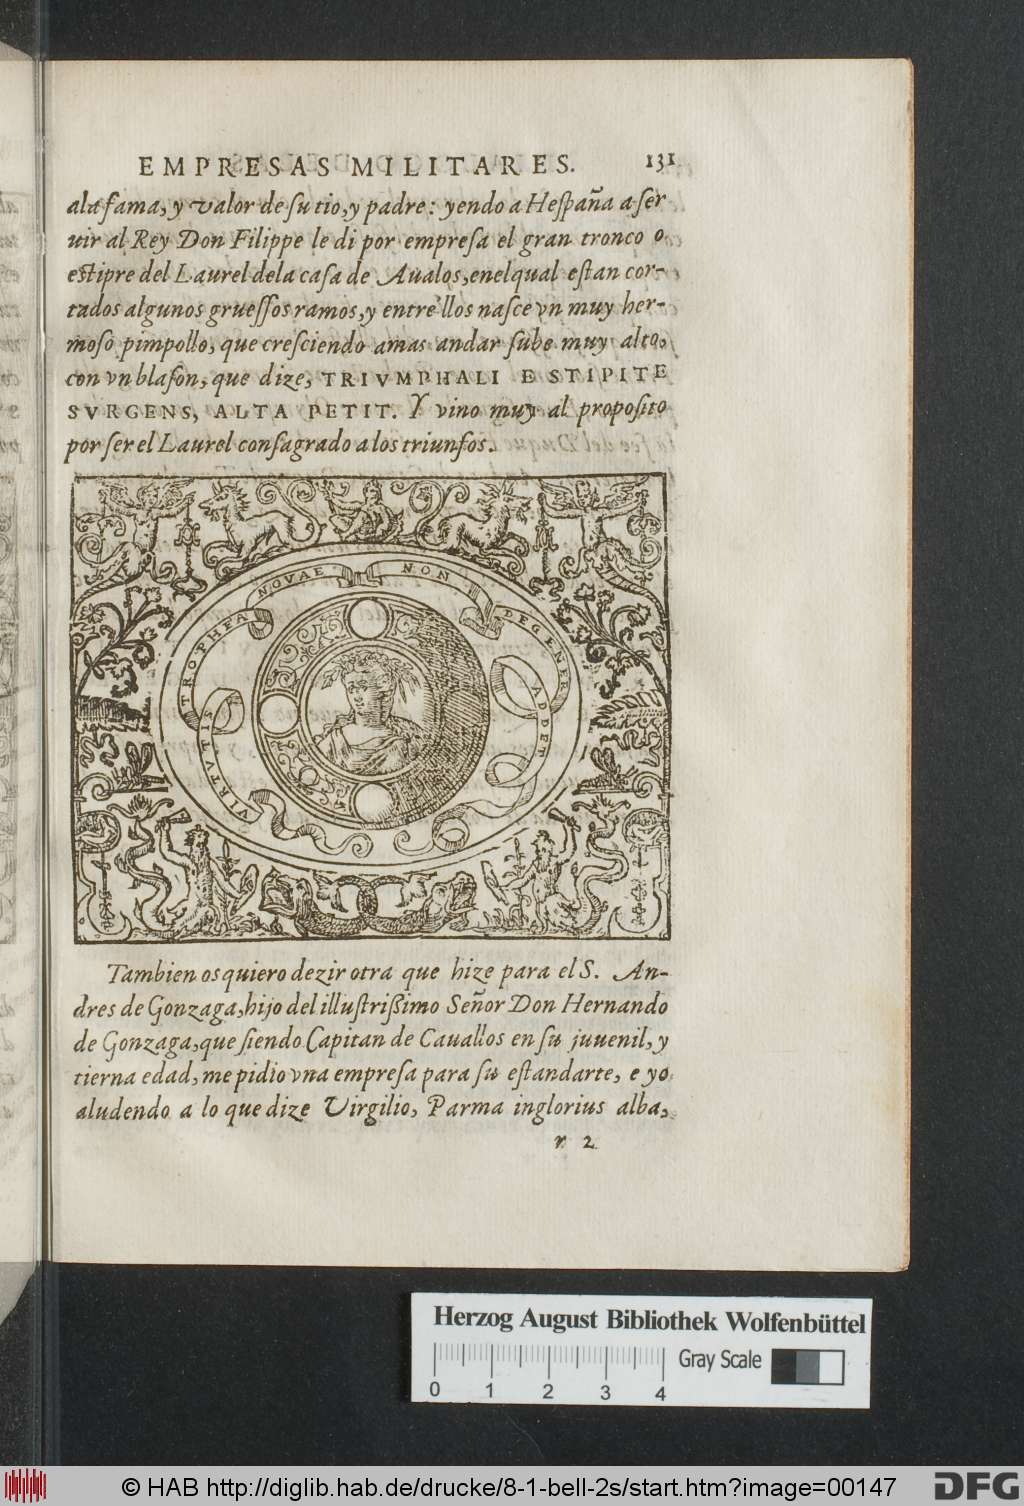 EMPRESAS MILITARES. 131
ala fama, y valor de su tio, y padre: yendo a Hespaña a ser
uir al Rey Don Filippe le di por empresa el gran tronco o
estipre del Laurel dela casa de Aualos, enelqual estan cor-
tados algunos gruessos ramos, y entre'llos nasce vn muy her-
moso pimpollo, que cresciendo amas andar sube muy alto,
con vn blason, que dize, TRIVMPHALI E STIPITE
SVRGENS, ALTA PETIT. Y vino muy al proposito
por ser el Laurel consagrado a los triunfos.
VIRTVTIS TROPHEA NOVAE NON DEGENER ADDET
Tambien os quiero dezir otra que hize para el S. An-
dres de Gonzaga, hijo del illustrißimo Señor Don Hernando
de Gonzaga, que siendo Capitan de Cauallos en su juuenil, y
tierna edad, me pidio vna empresa para su estandarte, e yo
aludendo a lo que dize Virgilio, Parma inglorius alba,
r 2
Herzog August Bibliothek Wolfenbüttel
Gray Scale
0 1 2 3 4
© HAB http://diglib.hab.de/drucke/8-1-bell-2s/start.htm?image=00147
DFG